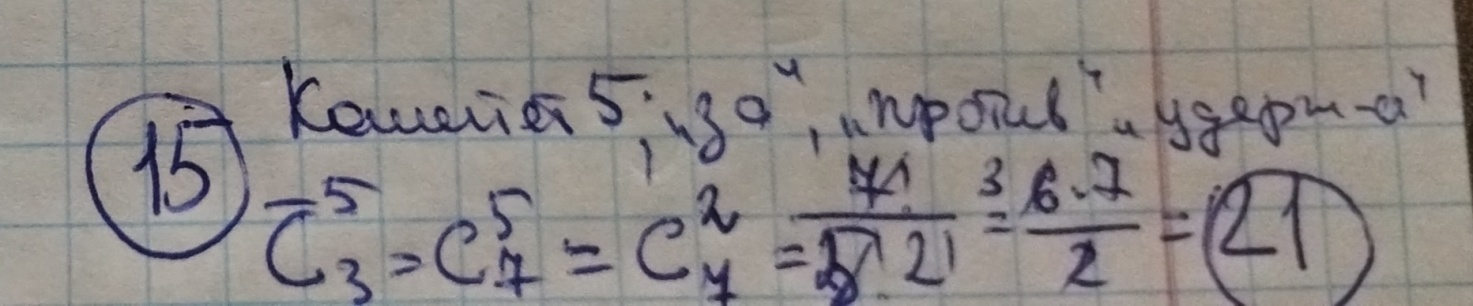 15 Комитет 5, „за“, „против“ „удерж-а“
C̅₃⁵ = C₇⁵ = C₇² = 7! / 5! 2! = 6·7 / 2 = 21